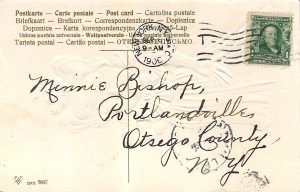 Postkarte - Carte postale - Post card - Cartolina postale
Briefkort - Brefkort - Correspondenzkarte - Dopisnice
Dopisnice - Karta korespondencyjna - Levelező-Lap
Unione postale universale - Weltpostverein - Union postale universelle
Tarjeta postal - Cartão postal - ОТКРЫТОЕ ПИСЬМО.
NEW YORK, N.Y.
9-AM
190
Minnie Bishop,
Portlandville
Otsego County
N.Y.